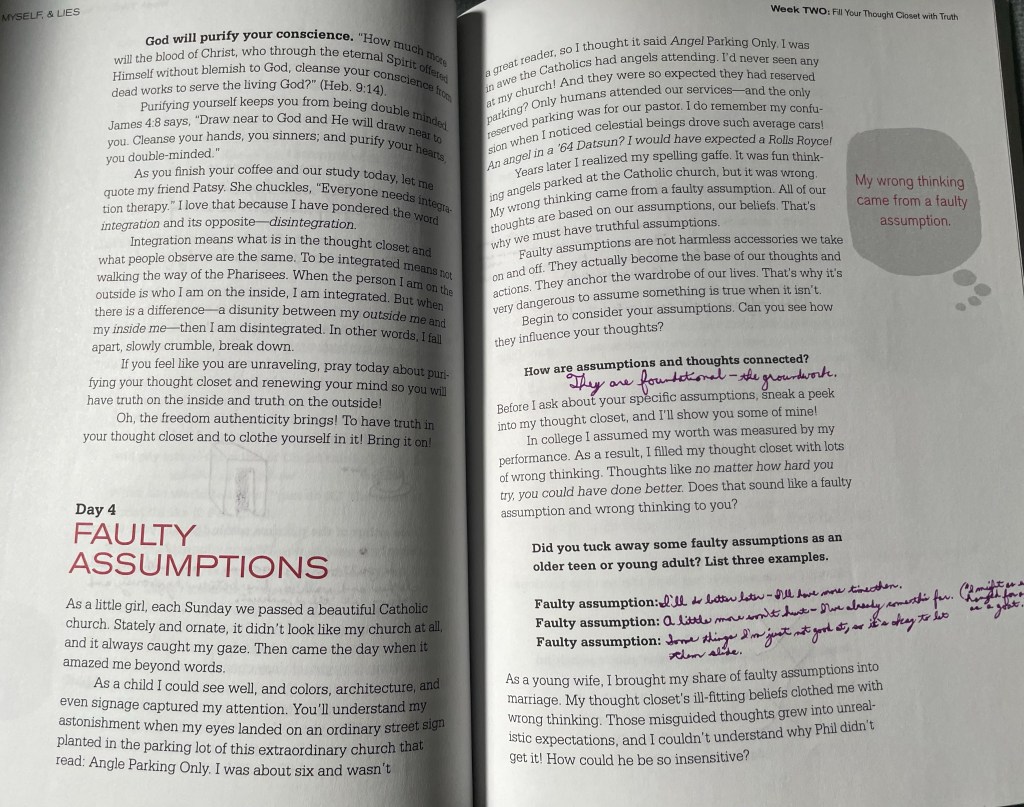 MYSELF, & LIES
God will purify your conscience. "How much more
will the blood of Christ, who through the eternal Spirit offered
Himself without blemish to God, cleanse your conscience from
dead works to serve the living God?" (Heb. 9:14).
Purifying yourself keeps you from being double minded.
James 4:8 says, "Draw near to God and He will draw near to
you. Cleanse your hands, you sinners; and purify your hearts,
you double-minded."
As you finish your coffee and our study today, let me
quote my friend Patsy. She chuckles, "Everyone needs integra-
tion therapy." I love that because I have pondered the word
integration and its opposite—disintegration.
Integration means what is in the thought closet and
what people observe are the same. To be integrated means not
walking the way of the Pharisees. When the person I am on the
outside is who I am on the inside, I am integrated. But when
there is a difference—a disunity between my outside me and
my inside me—then I am disintegrated. In other words, I fall
apart, slowly crumble, break down.
If you feel like you are unraveling, pray today about puri-
fying your thought closet and renewing your mind so you will
have truth on the inside and truth on the outside!
Oh, the freedom authenticity brings! To have truth in
your thought closet and to clothe yourself in it! Bring it on!
Day 4
FAULTY
ASSUMPTIONS
As a little girl, each Sunday we passed a beautiful Catholic
church. Stately and ornate, it didn't look like my church at all,
and it always caught my gaze. Then came the day when it
amazed me beyond words.
As a child I could see well, and colors, architecture, and
even signage captured my attention. You'll understand my
astonishment when my eyes landed on an ordinary street sign
planted in the parking lot of this extraordinary church that
read: Angle Parking Only. I was about six and wasn't
Week TWO: Fill Your Thought Closet with Truth
a great reader, so I thought it said Angel Parking Only. I was
in awe the Catholics had angels attending. I'd never seen any
at my church! And they were so expected they had reserved
parking? Only humans attended our services—and the only
reserved parking was for our pastor. I do remember my confu-
sion when I noticed celestial beings drove such average cars!
An angel in a '64 Datsun? I would have expected a Rolls Royce!
Years later I realized my spelling gaffe. It was fun think-
ing angels parked at the Catholic church, but it was wrong.
My wrong thinking came from a faulty assumption. All of our
thoughts are based on our assumptions, our beliefs. That's
why we must have truthful assumptions.
Faulty assumptions are not harmless accessories we take
on and off. They actually become the base of our thoughts and
actions. They anchor the wardrobe of our lives. That's why it's
very dangerous to assume something is true when it isn't.
Begin to consider your assumptions. Can you see how
they influence your thoughts?
My wrong thinking
came from a faulty
assumption.
How are assumptions and thoughts connected?
They are foundational - the groundwork.
Before I ask about your specific assumptions, sneak a peek
into my thought closet, and I'll show you some of mine!
In college I assumed my worth was measured by my
performance. As a result, I filled my thought closet with lots
of wrong thinking. Thoughts like no matter how hard you
try, you could have done better. Does that sound like a faulty
assumption and wrong thinking to you?
Did you tuck away some faulty assumptions as an
older teen or young adult? List three examples.
Faulty assumption: I'll do better later - I'll have more time then.
Faulty assumption: A little more won't hurt - I've already gone this far.
Faulty assumption: Some things I'm just not good at, so it's okay to let
them slide.
As a young wife, I brought my share of faulty assumptions into
marriage. My thought closet's ill-fitting beliefs clothed me with
wrong thinking. Those misguided thoughts grew into unreal-
istic expectations, and I couldn't understand why Phil didn't
get it! How could he be so insensitive?